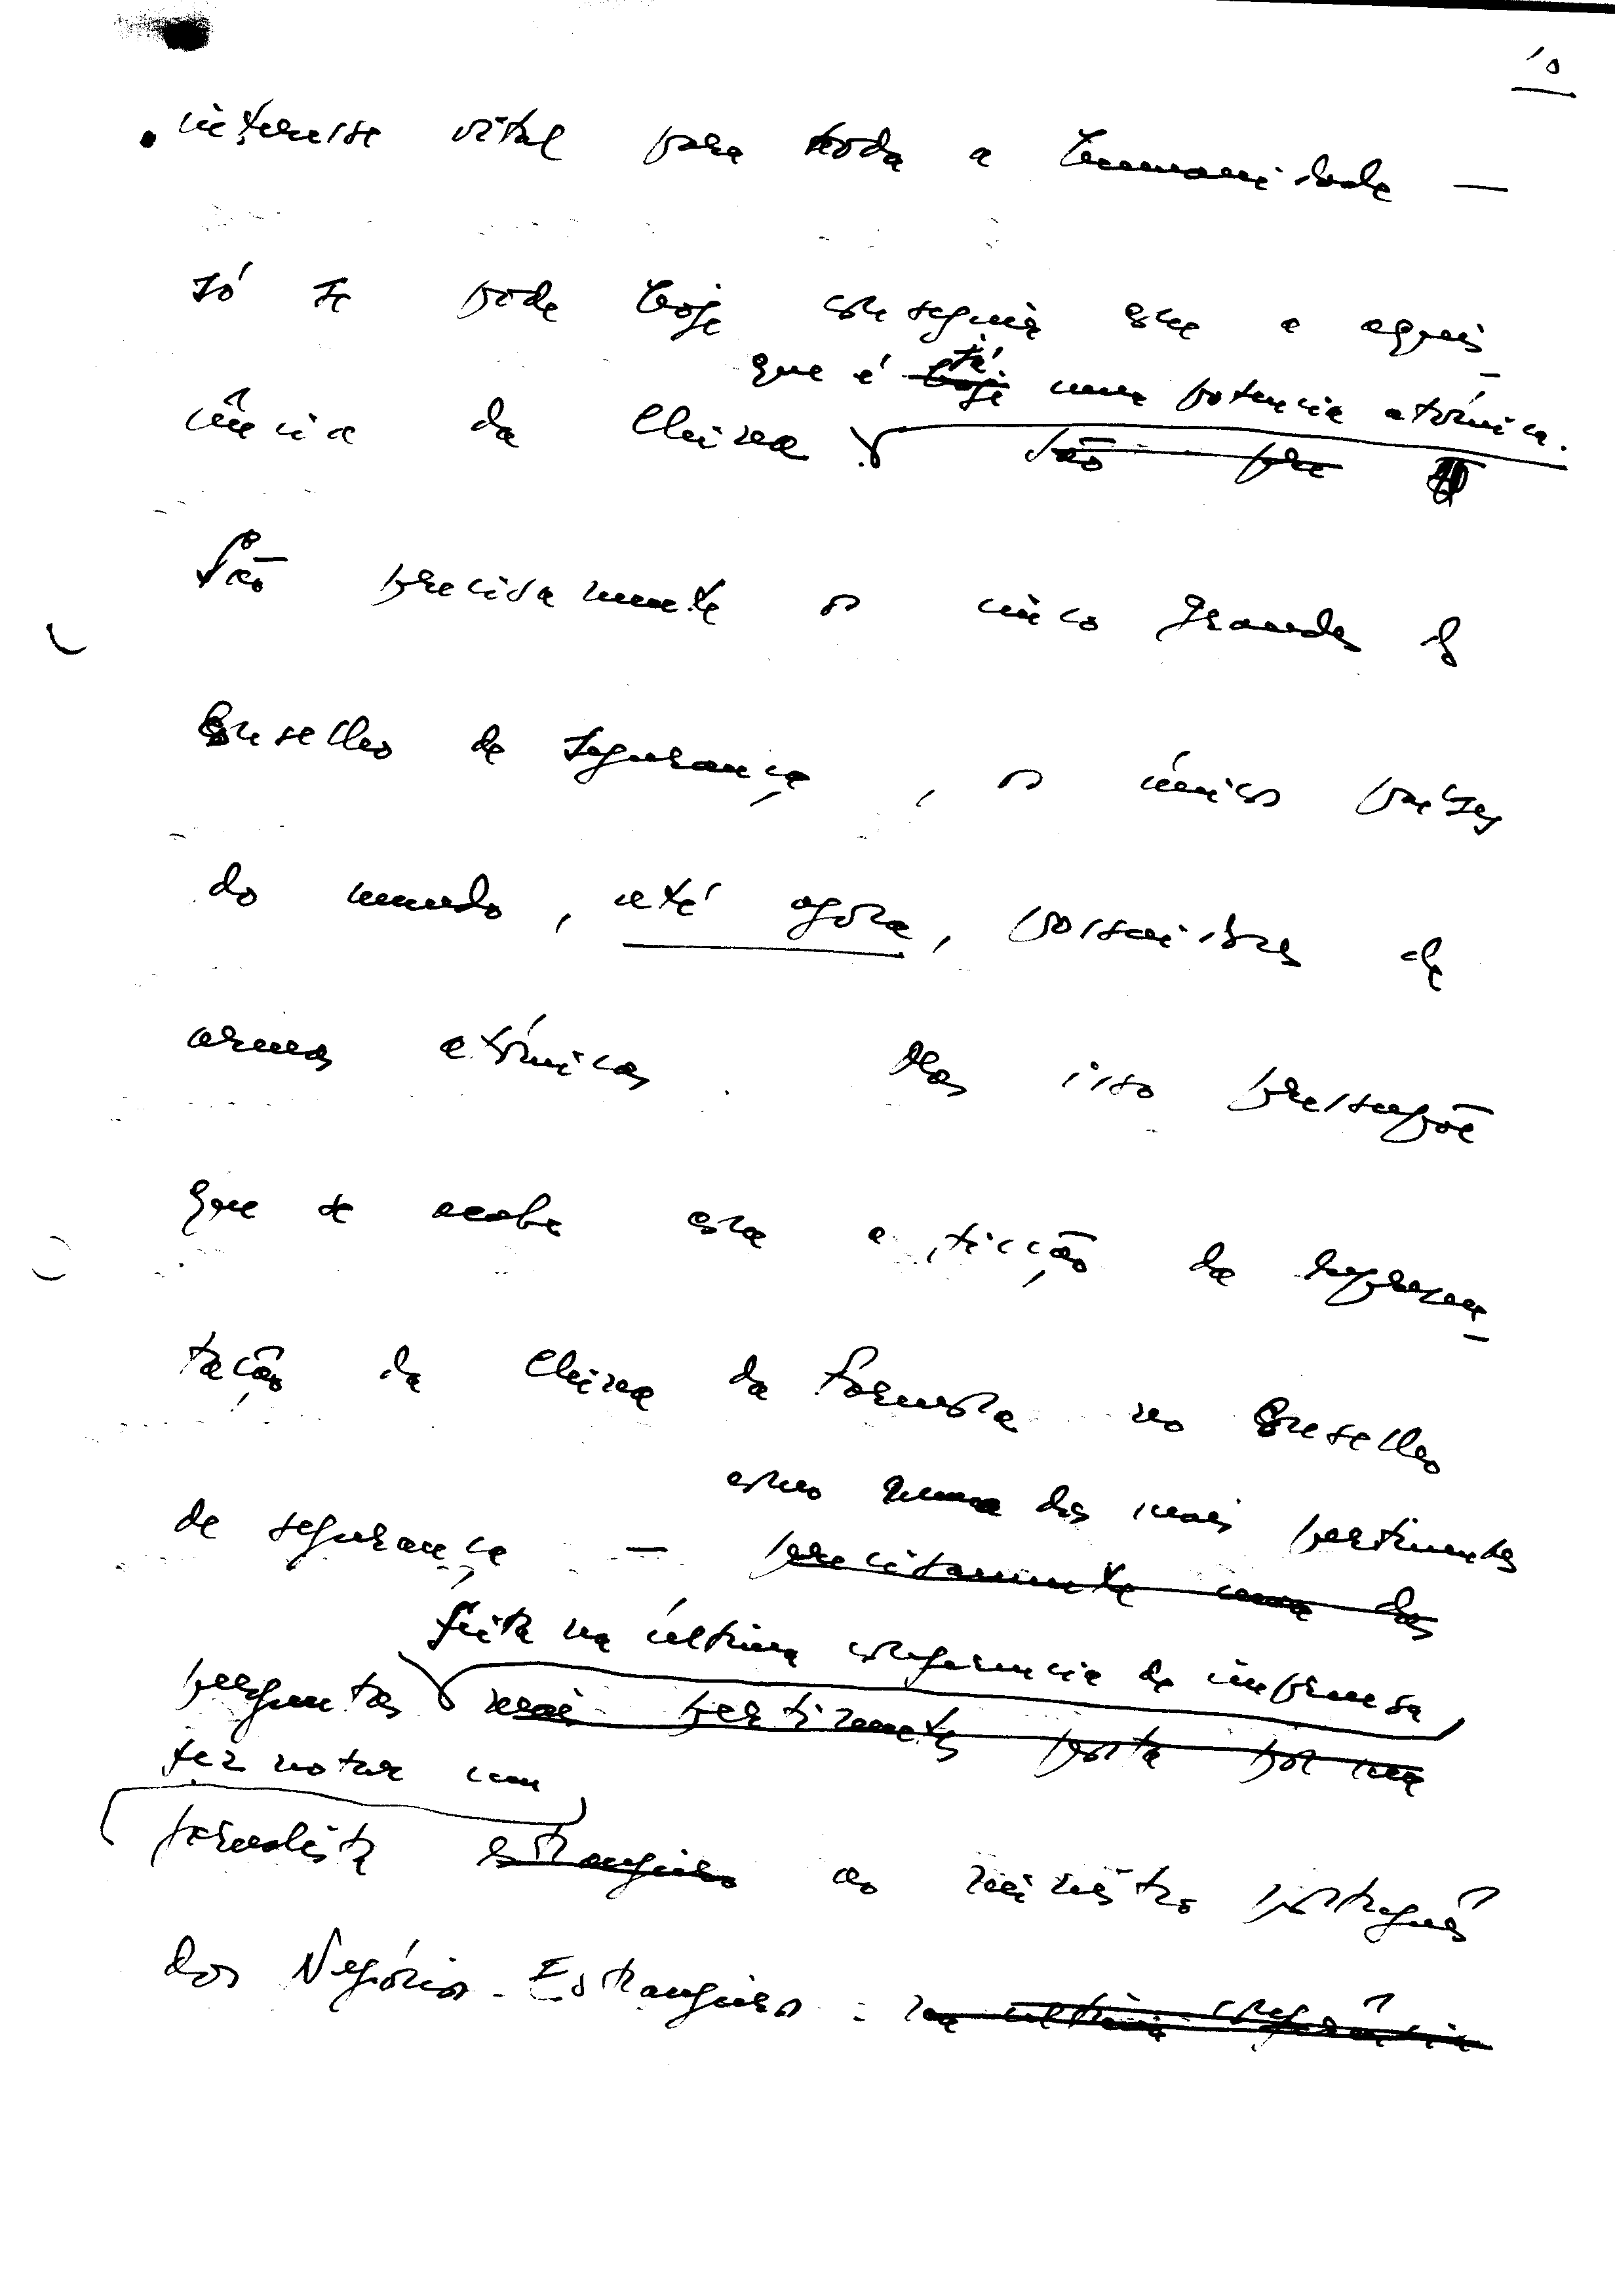 10
interesse vital para toda a humanidade —
só se pode hoje conseguir com a aquies-
que é hoje já uma potencia atómica.
cência da China. São pre
São precisamente os cinco grandes do
Conselho de Segurança, os únicos países
do mundo, até agora, possuidores de
armas atómicas. Mas isso pressupõe
que se acabe com a ficção da represen-
tação da China da Formosa no Conselho
como numa das mais pertinentes
de segurança — precisamente uma das
feita na última conferencia de imprensa,
perguntas mais pertinentes posta por um
fez notar um
jornalista estrangeiro ao ministro português
dos Negócios Estrangeiros. na última conferência